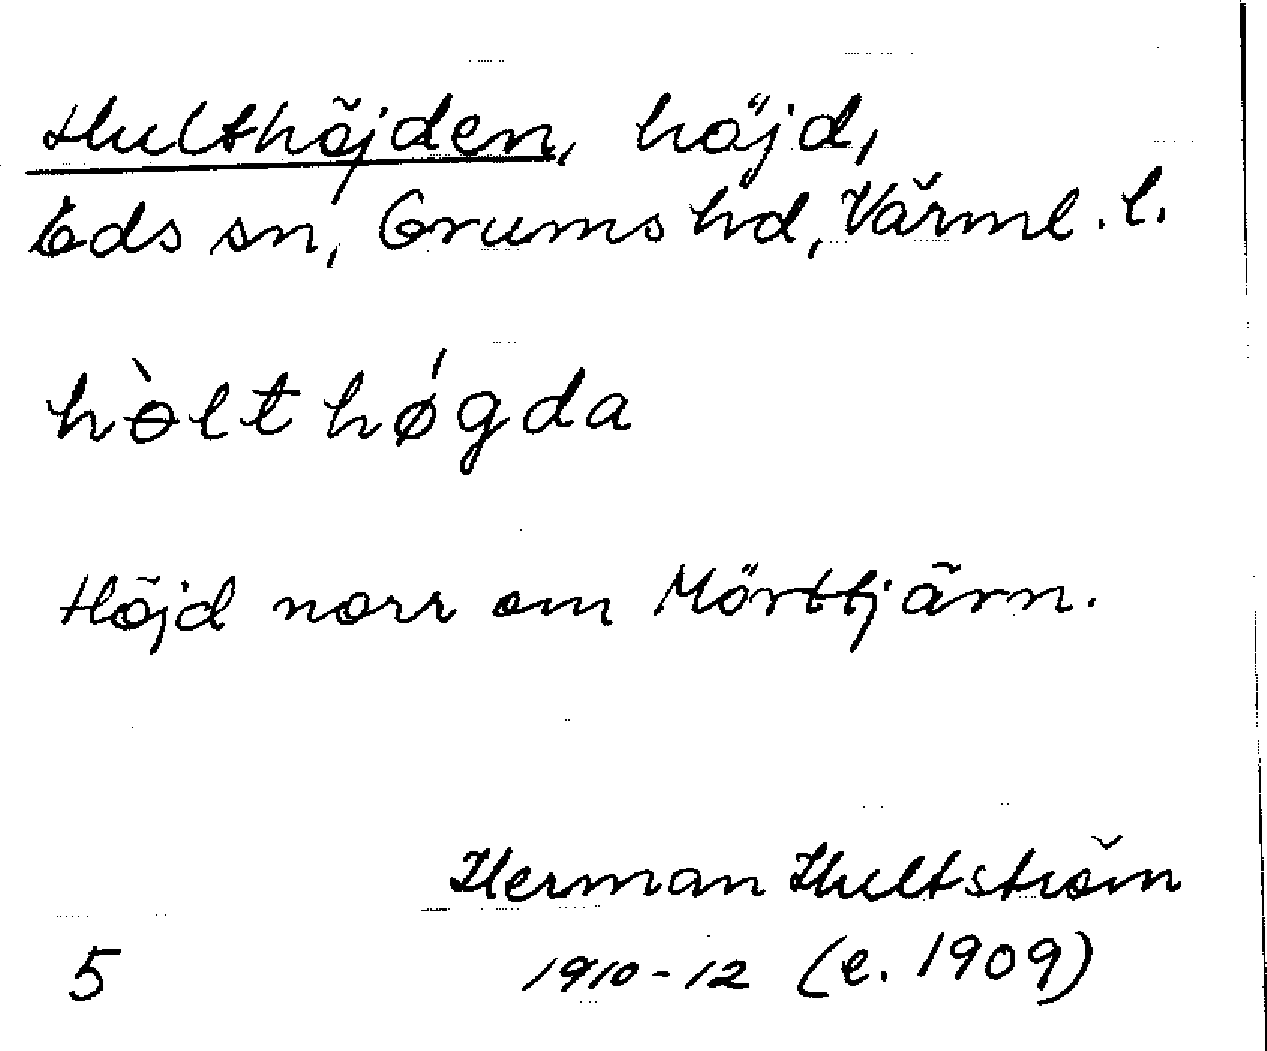 Hulthöjden, höjd,
Eds sn, Grums hd, Värml. l.
hὸlthǿgda
Höjd norr om Mörttjärn.
Herman Hultström
5 1910-12 (e. 1909)